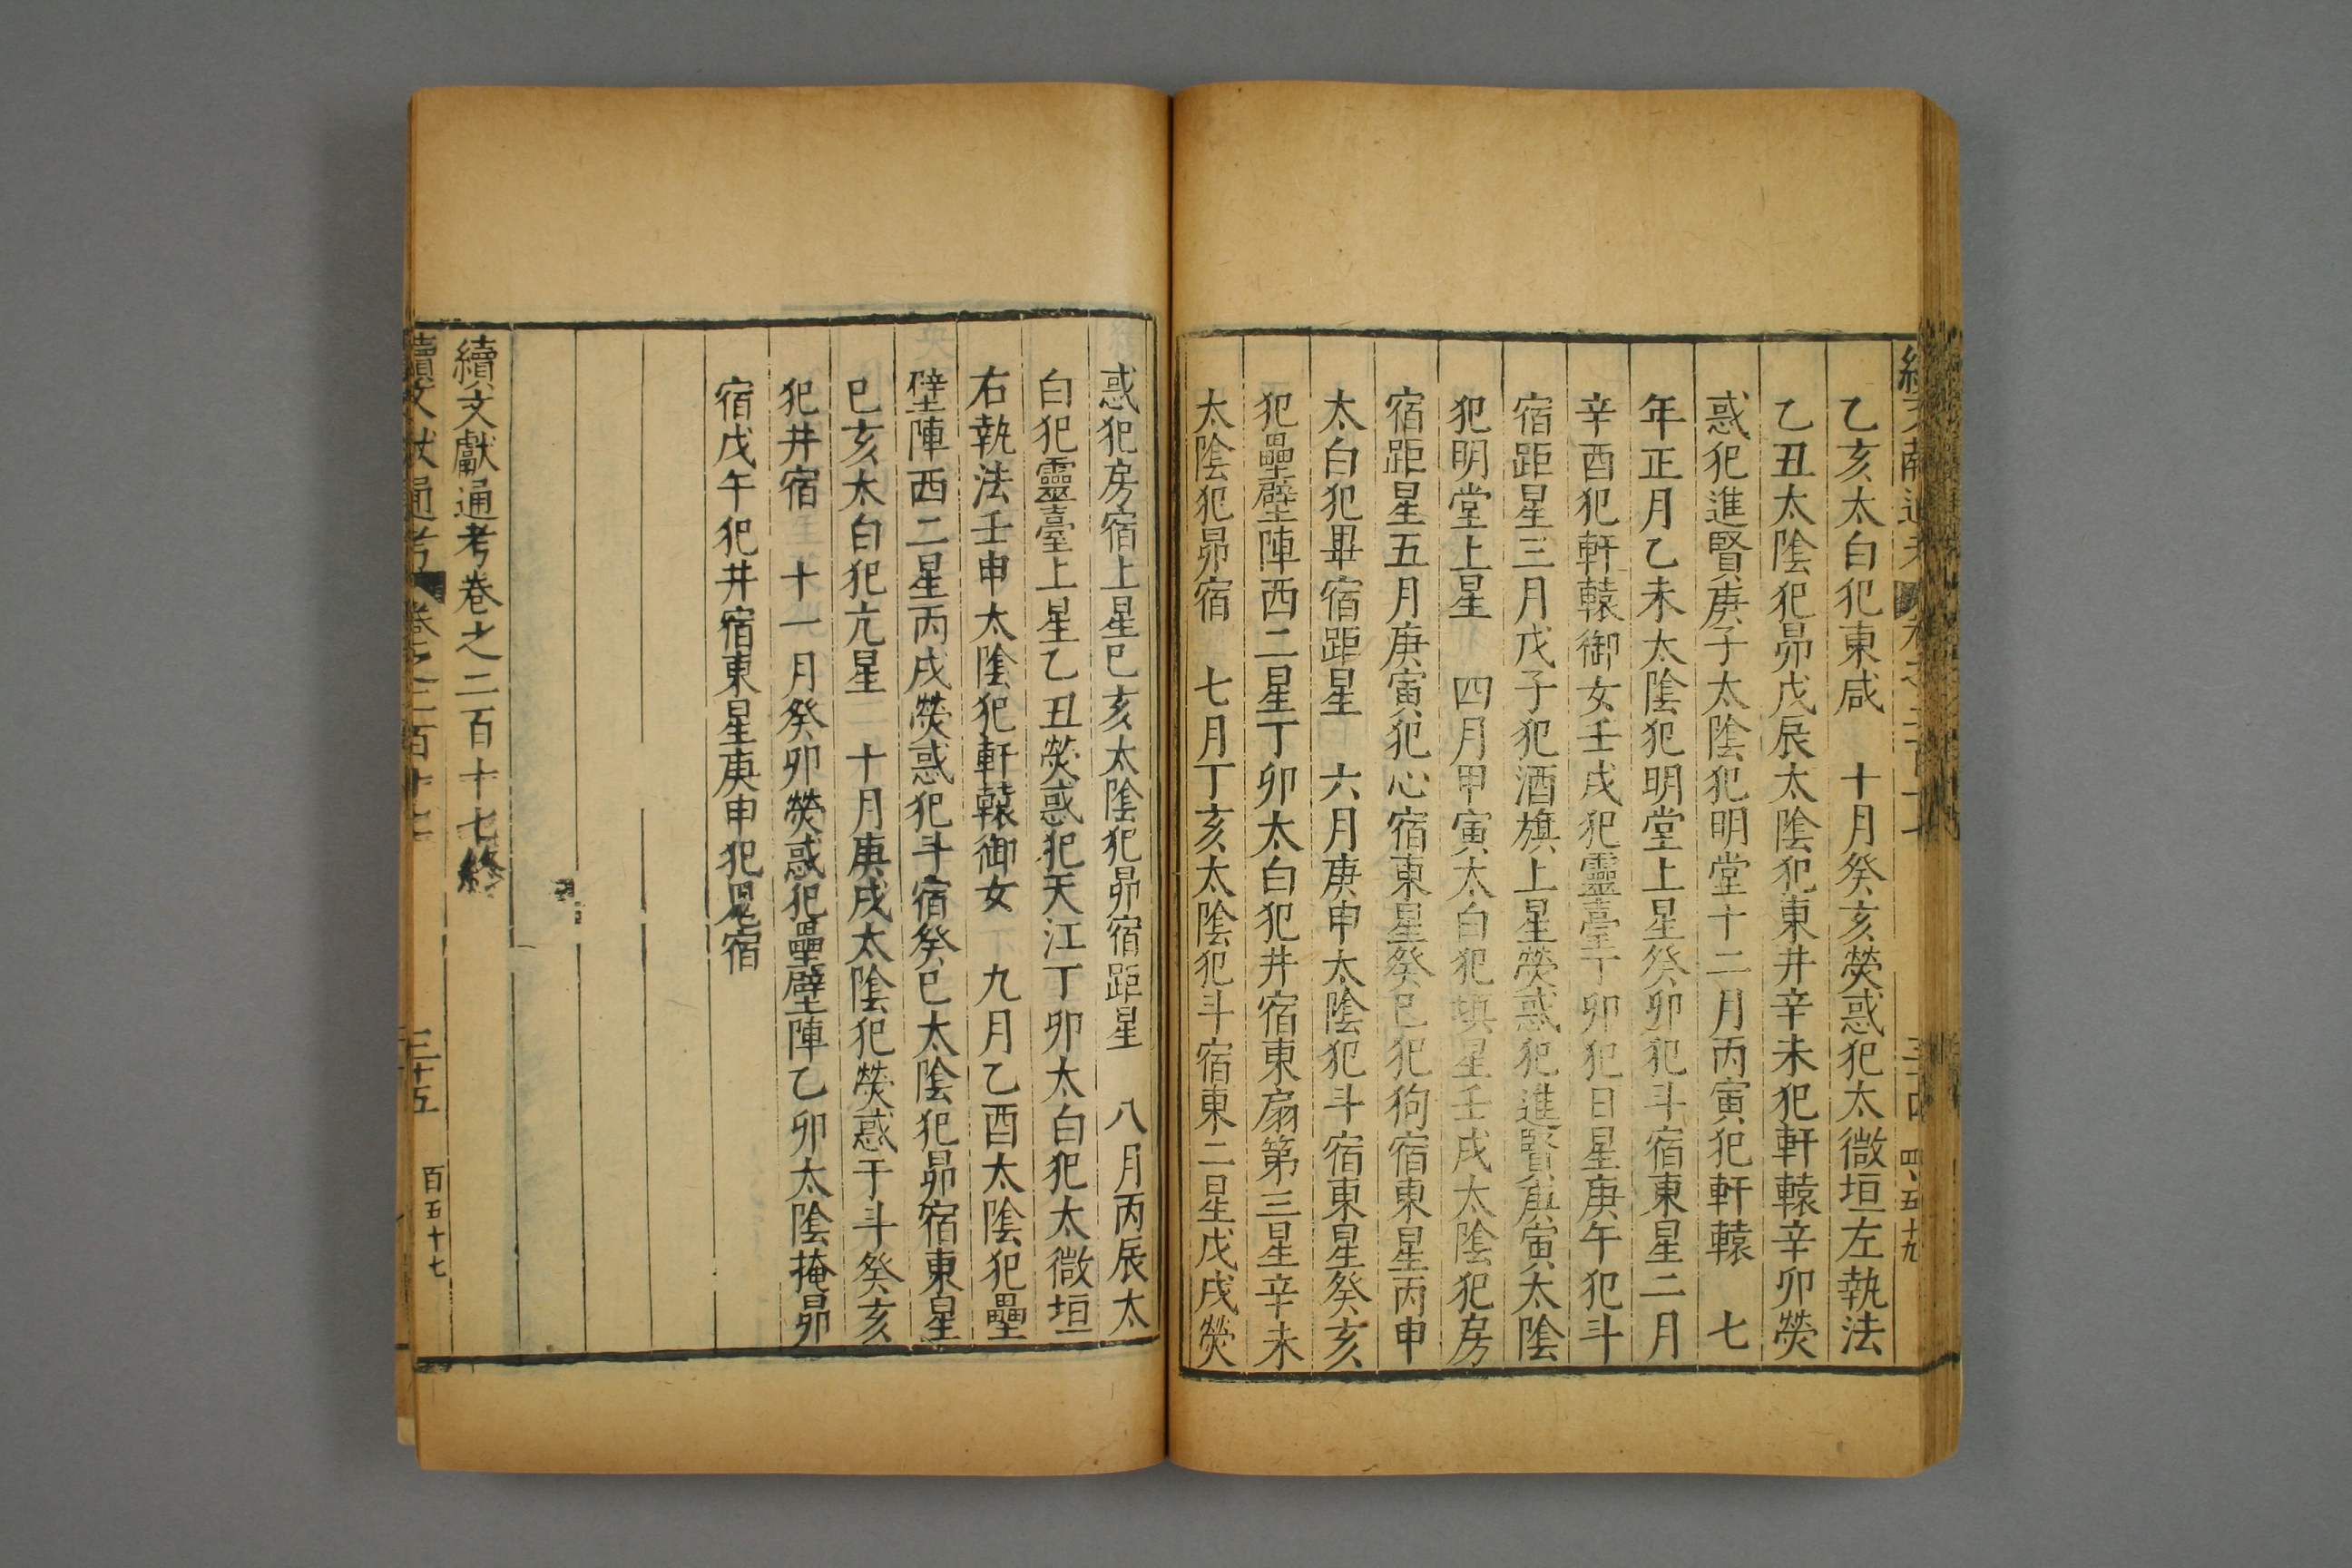 乙亥太白犯東咸　十月癸亥熒惑犯太微垣左執法
乙丑太陰犯昴戊辰太陰犯東井辛未犯軒轅辛卯熒
惑犯進賢庚子太陰犯明堂十二月丙寅犯軒轅　七
年正月乙未太陰犯明堂上星癸卯犯斗宿東星二月
辛酉犯軒轅御女壬戌犯靈臺丁卯犯日星庚午犯斗
宿距星三月戊子犯酒旗上星熒惑犯進賢庚寅太陰
犯明堂上星　四月甲寅太白犯填星壬戌太陰犯房
宿距星五月庚寅犯心宿東星癸巳犯狗宿東星丙申
太白犯畢宿距星　六月庚申太陰犯斗宿東星癸亥
犯壘壁陣西二星丁卯太白犯井宿東扇第三星辛未
太陰犯昴宿　七月丁亥太陰犯斗宿東二星戊戌熒
惑犯房宿上星巳亥太陰犯昴宿距星　八月丙辰太
白犯靈臺上星乙丑熒惑犯天江丁卯太白犯太微垣
右執法壬申太陰犯軒轅御女　九月乙酉太陰犯壘
壁陣西二星丙戌熒惑犯斗宿癸巳太陰犯昴宿東星
巳亥太白犯亢星　十月庚戌太陰犯熒惑于斗癸亥
犯井宿　十一月癸卯熒惑犯壘壁陣乙卯太陰掩昴
宿戊午犯井宿東星庚申犯鬼宿
續文獻通考卷之二百十七終
續文獻通考　卷之二百十七　三十五　百五十七